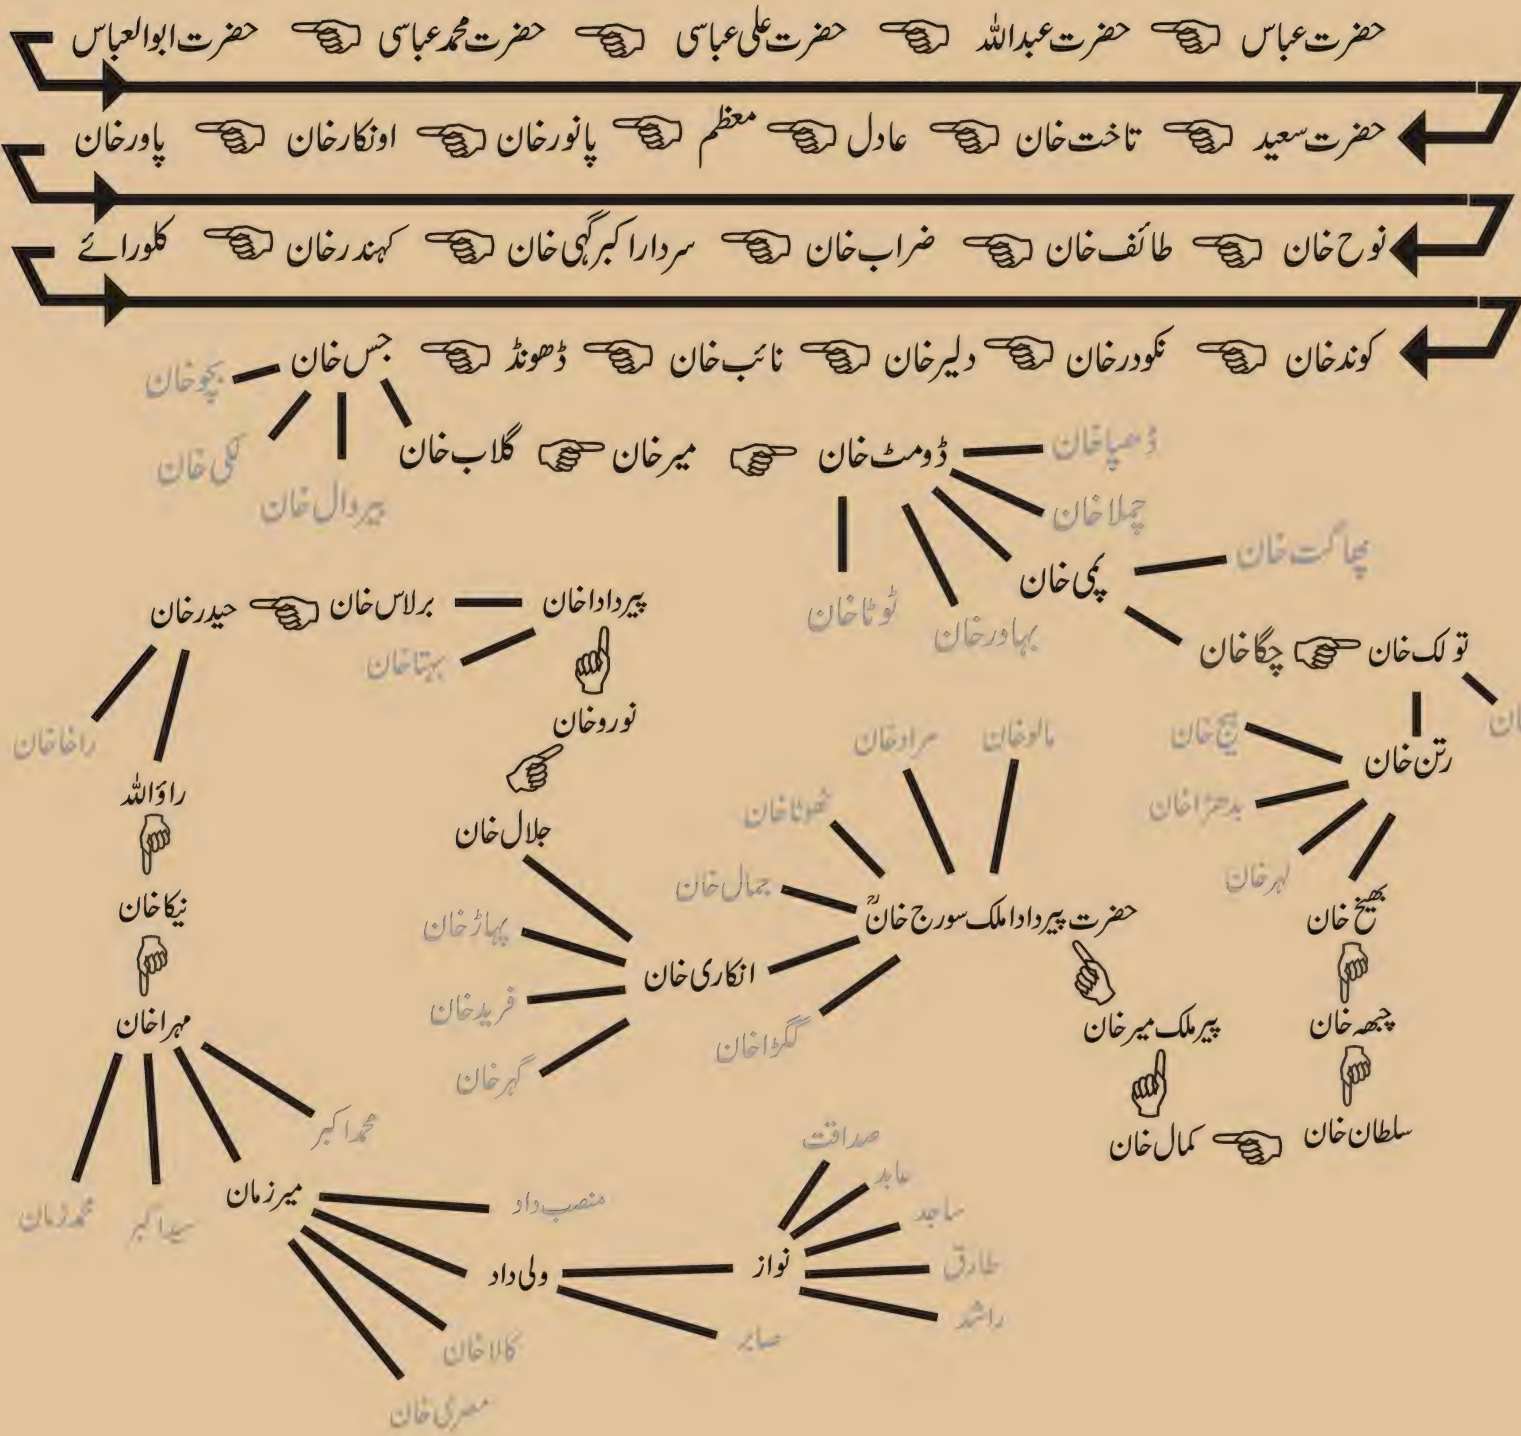 حضرت عباس حضرت عبداللہ حضرت علی عباسی حضرت محمد عباسی حضرت ابوالعباس
حضرت سعید تاخت خان عادل معظم پانورخان اونکارخان پاورخان
نوح خان طائف خان ضراب خان سردار اکبر گہی خان کہندرخان کلورائے
کوندخان نکودرخان دلیرخان نائب خان ڈھونڈ جس خان
بچوخان
لکی خان
پیردال خان
گلاب خان میرخان ڈومٹ خان
ڈھپاخان
چملاخان
پمی خان
چھاگت خان
بہادرخان
ٹوٹاخان
چگاخان تولک خان
رتن خان
بدھڑاخان
لہرخان
بھیخ خان
چبھہ خان
سلطان خان
کمال خان
پیر ملک میرخان
حضرت پیردادا ملک سورج خانؒ
مالوخان
مرادخان
جمال خان
گگڑاخان
انکاری خان
جلال خان
پہاڑخان
فریدخان
گہرخان
نوروخان
پیرداداخان
برلاس خان
بہتاخان
حیدرخان
راخاخان
راؤاللہ
نیکاخان
مہراخان
محمداکبر
میرزمان
سیداکبر
محمدزمان
منصب داد
ولی داد
کالاخان
مصری خان
نواز
صابر
صداقت
عابد
ساجد
طارق
راشد